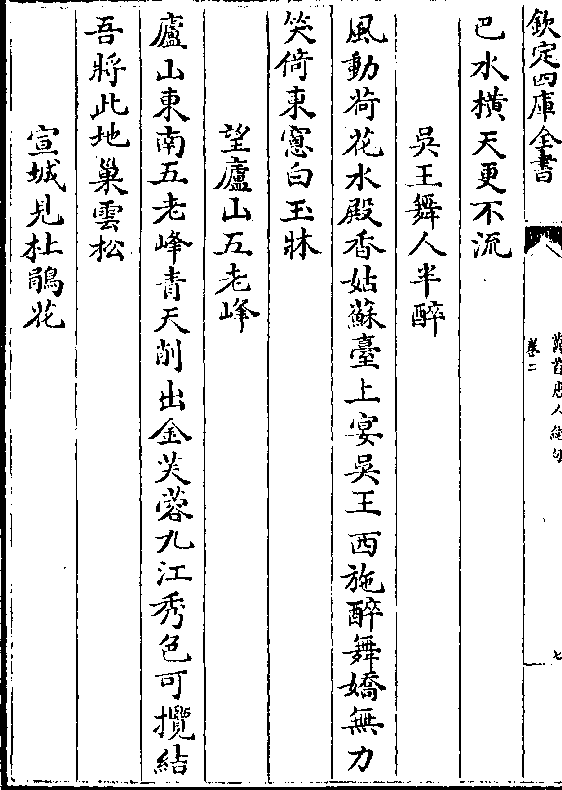 欽定四庫全書
萬首唐人絶句
卷二
七
巴水橫天更不流
吳王舞人半醉
風動荷花水殿香姑蘇臺上宴吳王西施醉舞嬌無力
笑倚東窻白玉牀
望廬山五老峰
廬山東南五老峰青天削出金芙蓉九江秀色可攬結
吾將此地巢雲松
宣城見杜鵑花